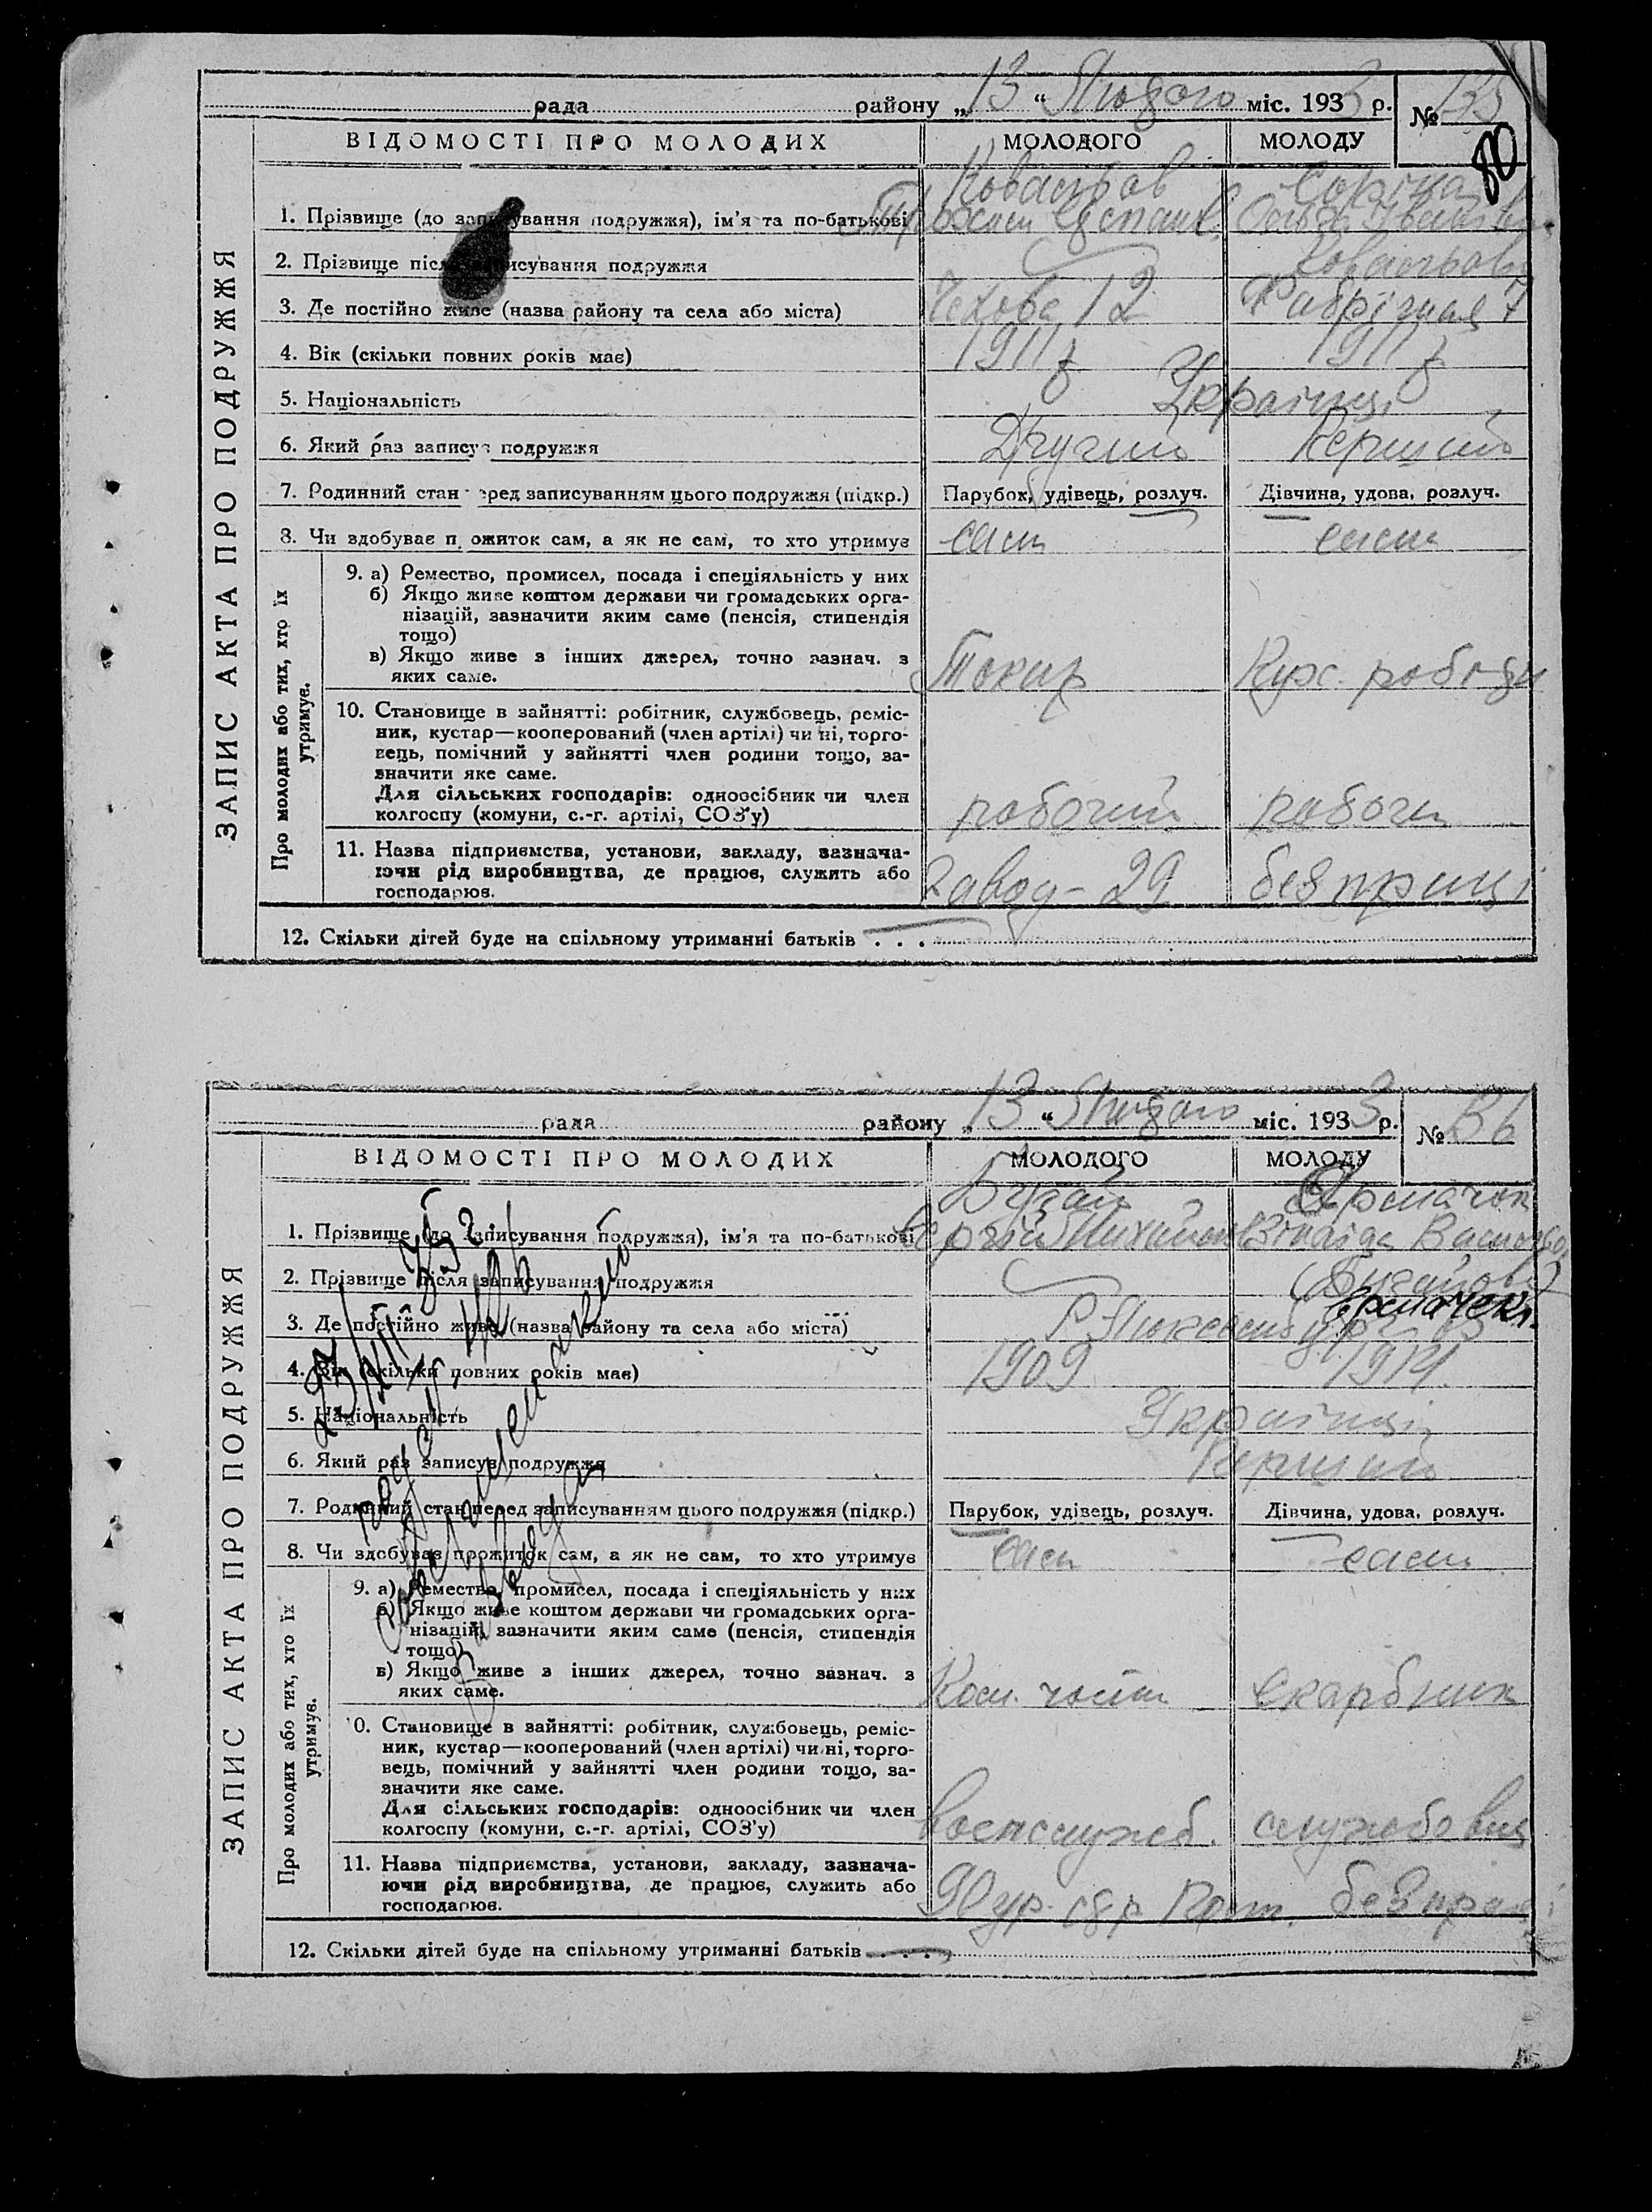 рада району „13“ Лютого міс. 1933 р. № 135
80
ВІДОМОСТІ ПРО МОЛОДИХ МОЛОДОГО МОЛОДУ
ЗАПИС АКТА ПРО ПОДРУЖЖЯ
1. Прізвище (до записування подружжя), ім'я та по-батькові
2. Прізвище після записування подружжя
3. Де постійно живе (назва району та села або міста) Чехова 12 Фабрічная 7
4. Вік (скільки повних років має) 1911 р 1911 р
5. Національність Українці
6. Який раз записує подружжя Другий Перший
7. Родинний стан перед записуванням цього подружжя (підкр.) Парубок, удівець, розлуч. Дівчина, удова, розлуч.
8. Чи здобуває прожиток сам, а як не сам, то хто утримує сам сама
Про молодих або тих, хто їх утримує.
9. а) Ремество, промисел, посада і спеціяльність у них
б) Якщо живе коштом держави чи громадських орга-
нізацій, зазначити яким саме (пенсія, стипендія
тощо)
в) Якщо живе з інших джерел, точно зазнач. з
яких саме. Токар
10. Становище в зайнятті: робітник, службовець, реміс-
ник, кустар—кооперований (член артілі) чи ні, торго-
вець, помічний у зайнятті член родини тощо, за-
значити яке саме.
Для сільських господарів: одноосібник чи член
колгоспу (комуни, с.-г. артілі, СОЗ'у) робочий
11. Назва підприємства, установи, закладу, зазнача-
ючи рід виробництва, де працює, служить або
господарює. Завод - 29 без праці
12. Скільки дітей буде на спільному утриманні батьків . . .
рада району „13“ Лютого міс. 1933 р. № 136
ВІДОМОСТІ ПРО МОЛОДИХ МОЛОДОГО МОЛОДУ
ЗАПИС АКТА ПРО ПОДРУЖЖЯ
Бугай Ярмачок
1. Прізвище (до записування подружжя), ім'я та по-батькові Сергій
2. Прізвище після записування подружжя (Бугайова)
3. Де постійно живе (назва району та села або міста)
4. Вік (скільки повних років має) 1909 1914
5. Національність Українці
6. Який раз записує подружжя Перший
7. Родинний стан перед записуванням цього подружжя (підкр.) Парубок, удівець, розлуч. Дівчина, удова, розлуч.
8. Чи здобуває прожиток сам, а як не сам, то хто утримує сам сама
Про молодих або тих, хто їх утримує.
9. а) Ремество, промисел, посада і спеціяльність у них
б) Якщо живе коштом держави чи громадських орга-
нізацій, зазначити яким саме (пенсія, стипендія
тощо)
в) Якщо живе з інших джерел, точно зазнач. з
яких саме. скарбник
10. Становище в зайнятті: робітник, службовець, реміс-
ник, кустар—кооперований (член артілі) чи ні, торго-
вець, помічний у зайнятті член родини тощо, за-
значити яке саме.
Для сільських господарів: одноосібник чи член
колгоспу (комуни, с.-г. артілі, СОЗ'у)
11. Назва підприємства, установи, закладу, зазнача-
ючи рід виробництва, де працює, служить або
господарює. без праці
12. Скільки дітей буде на спільному утриманні батьків . . .